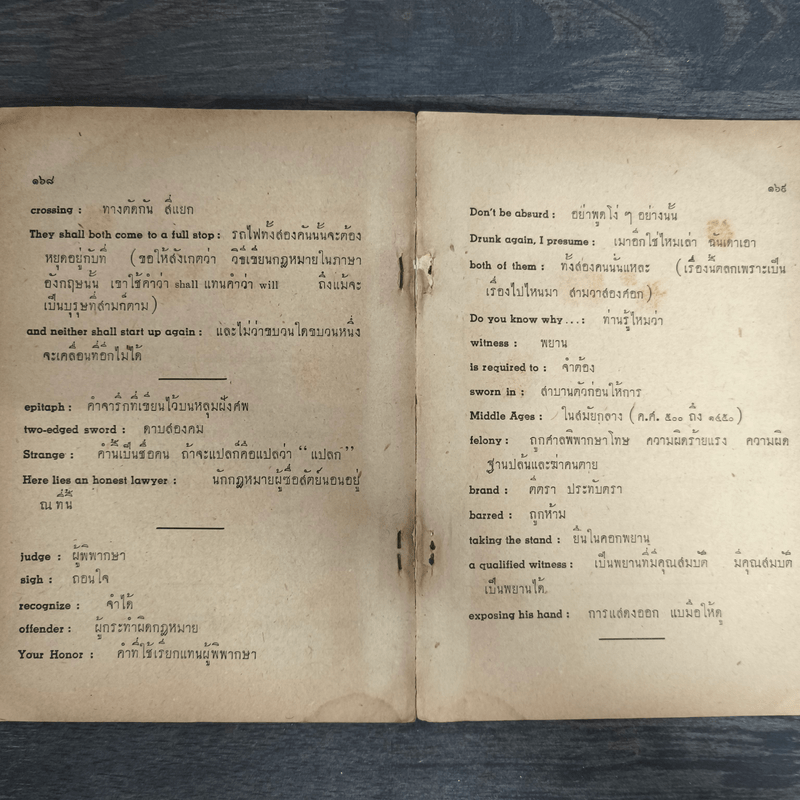 ๑๖๘
crossing : ทางตัดกัน สี่แยก
They shall both come to a full stop : รถไฟทั้งสองคันนั้นจะต้อง
หยุดอยู่กับที่ (ขอให้สังเกตว่า วิธีเขียนกฎหมายในภาษา
อังกฤษนั้น เขาใช้คำว่า shall แทนคำว่า will ถึงแม้จะ
เป็นบุรุษที่สามก็ตาม)
and neither shall start up again : และไม่ว่าขบวนใดขบวนหนึ่ง
จะเคลื่อนที่อีกไม่ได้
epitaph : คำจารึกที่เขียนไว้บนหลุมฝังศพ
two-edged sword : ดาบสองคม
Strange : คำนี้เป็นชื่อคน ถ้าจะแปลก็คือแปลว่า “แปลก”
Here lies an honest lawyer : นักกฎหมายผู้ซื่อสัตย์นอนอยู่
ณ ที่นี้
judge : ผู้พิพากษา
sigh : ถอนใจ
recognize : จำได้
offender : ผู้กระทำผิดกฎหมาย
Your Honor : คำที่ใช้เรียกแทนผู้พิพากษา
๑๖๙
Don't be absurd : อย่าพูดโง่ ๆ อย่างนั้น
Drunk again, I presume : เมาอีกใช่ไหมเล่า ฉันเดาเอา
both of them : ทั้งสองคนนั้นแหละ (เรื่องนี้ตลกเพราะเป็น
เรื่องไปไหนมา สามวาสองศอก)
Do you know why ... : ท่านรู้ไหมว่า
witness : พยาน
is required to : จำต้อง
sworn in : สาบานตัวก่อนให้การ
Middle Ages : ในสมัยกลาง (ค.ศ. ๕๐๐ ถึง ๑๔๕๐)
felony : ถูกศาลพิพากษาโทษ ความผิดร้ายแรง ความผิด
ฐานปล้นและฆ่าคนตาย
brand : ตีตรา ประทับตรา
barred : ถูกห้าม
taking the stand : ยืนในคอกพยาน
a qualified witness : เป็นพยานที่มีคุณสมบัติ มีคุณสมบัติ
เป็นพยานได้
exposing his hand : การแสดงออก แบมือให้ดู